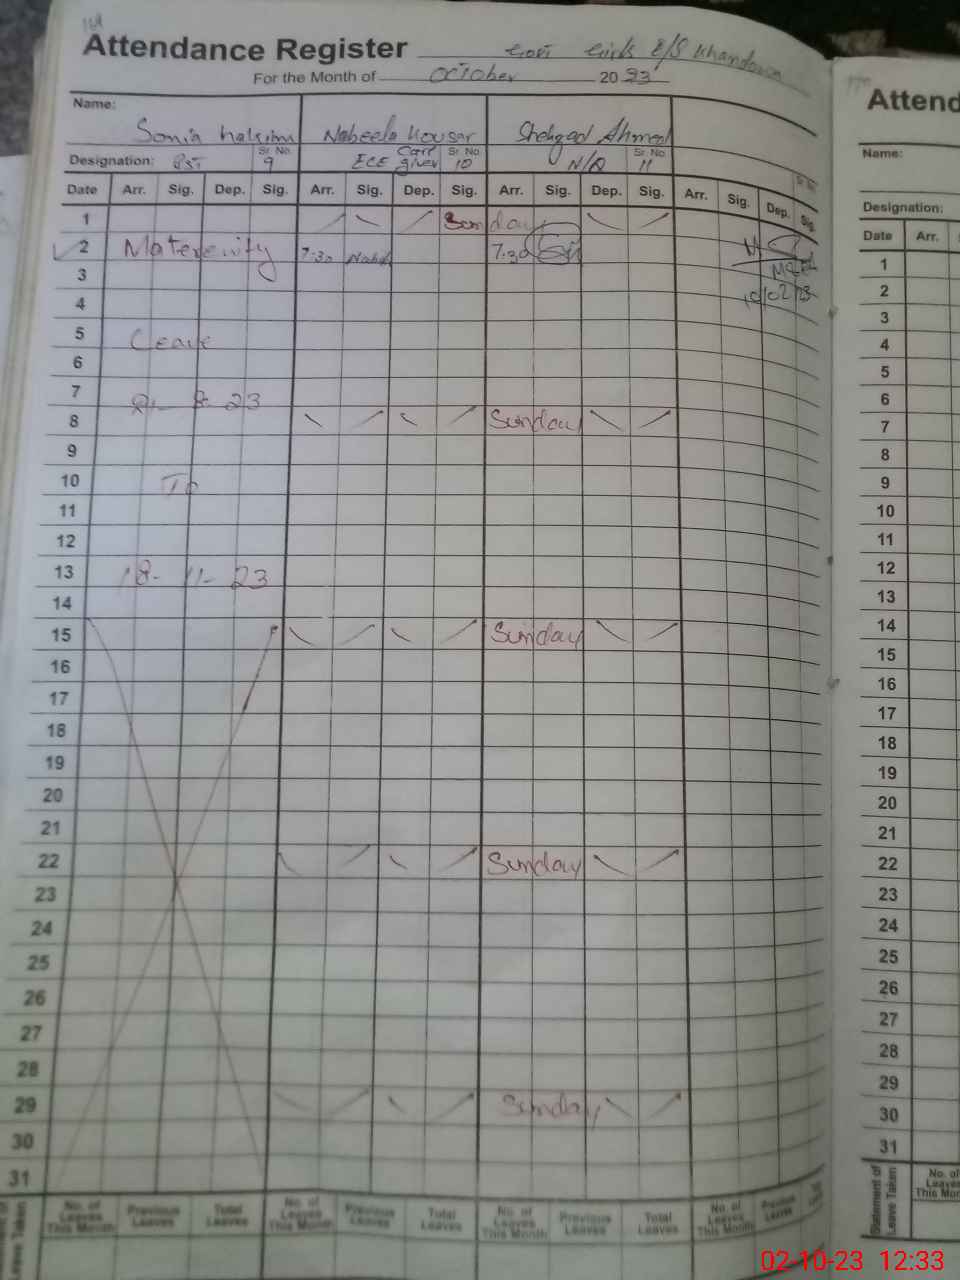 Attendance Register Govt Girls E/S Khandowa
For the Month of October 2023
Name: Sonia Nabeela Kousar Shehzad Ahmed
Designation: PST Sr. No. 9 ECE Care giver Sr. No. 10 N/Q Sr. No. 11 Sr. No.
Date Arr. Sig. Dep. Sig. Arr. Sig. Dep. Sig. Arr. Sig. Dep. Sig. Arr. Sig. Dep. Sig.
1 Sunday
2 Maternity 7:30 7:30
3
4
5 Leave
6
7 23
8 Sunday
9
10 To
11
12
13 18- 11- 23
14
15 Sunday
16
17
18
19
20
21
22 Sunday
23
24
25
26
27
28
29 Sunday
30
31
Leave Taken No. of Leaves This Month Previous Leaves Total Leaves No. of Leaves This Month Previous Leaves Total Leaves No. of Leaves This Month Previous Leaves Total Leaves No. of Leaves This Month Previous Leaves
Attend
Name:
Designation:
Date Arr.
1
2
3
4
5
6
7
8
9
10
11
12
13
14
15
16
17
18
19
20
21
22
23
24
25
26
27
28
29
30
31
Statement of Leave Taken No. of Leaves This Mon
02-10-23 12:33